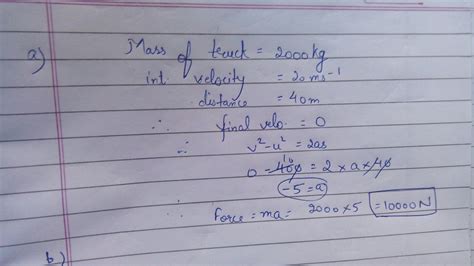 a) Mass of truck = 2000kg
int. velocity = 20 ms⁻¹
distance = 40m
∴ final velo. = 0
∴ v²-u² = 2as
0 - 400 = 2 × a × 40
10
-5 = a
∴ Force = ma = 2000×5 = 10000N
b)